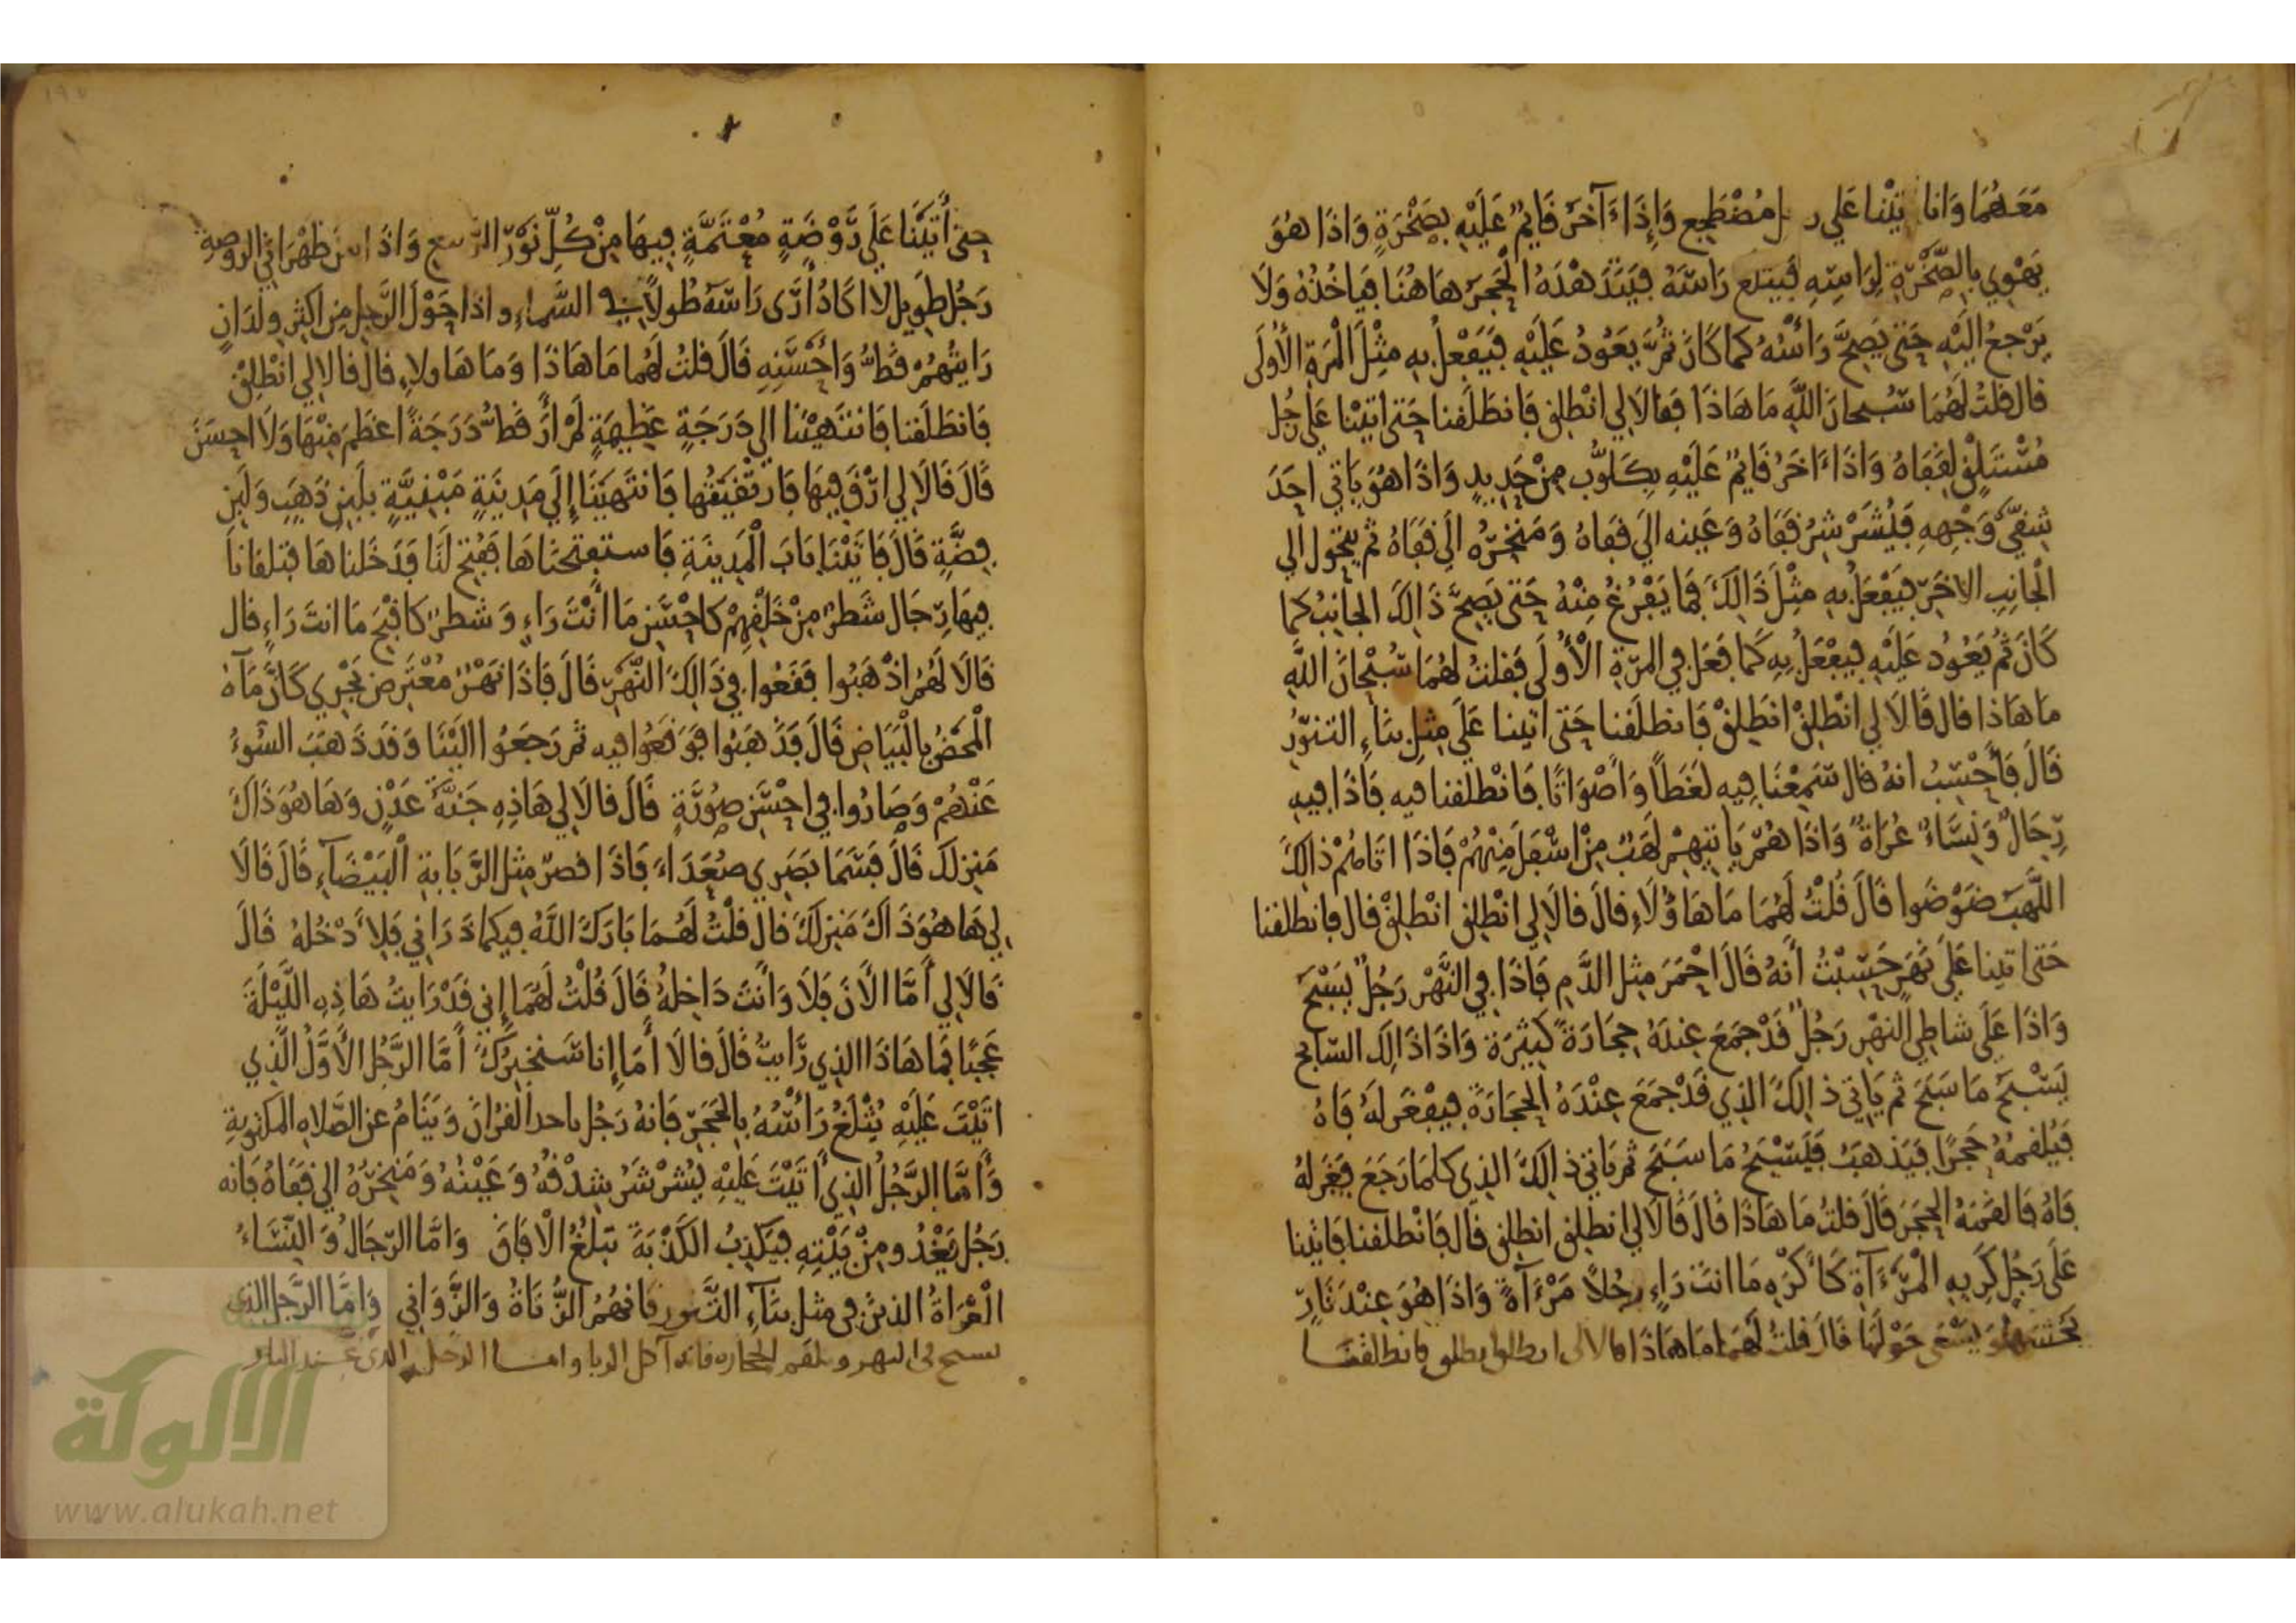 مَعَهُمَا وَانا تَيْنا عَلي مُضْطَجِعٍ وَإِذَا ءَآخَرُ قَايِمٌ عَلَيْهِ بِصَخْرَةٍ وَاذَا هُوَ
يَهْوِي بِالصَّخْرَةِ لِرَاسِهِ فَيثلغ رَاسَهُ فَيَتَدَهْدَهُ الْحَجَرُ هَاهُنَا فَيَاخُذُهُ وَلَا
يَرْجعُ الَيْهِ حَتى يَصِحَّ رَاسُهُ كما كَانَ ثُمَّ يَعُودُ عَلَيْهِ فَيَفْعلُ بِهِ مِثْلَ الْمَرَّةِ الأُولَى
قال قلتُ لَهُمَا سُبْحانَ اللَّهِ مَا هَاذَا فقَالَا لِي انْطلِق فَانطَلَقنا حَتى اتَيْنا عَلَى رَجُلٍ
مُسْتَلْقٍ لِقَفَاهُ وَاذَا ءَاخَرُ قَايمٌ عَلَيْهِ بِكَلُّوبٍ مِنْ حَدِيدٍ وَاذَا هُوَ يَاتي احَدَ
شِقَّيْ وَجْهِهِ فَيُشَرْشِرُ قفَاهُ وَعَينه الَي قفاهُ وَمَنْخِرُه الَى قَفَاهُ ثُم يتحَول الي
الْجانِبِ الاخَرِ فَيَفْعَلُ بِهِ مِثْلَ ذَالِكَ فَمَا يَفْرُغُ مِنْهُ حَتى يَصِحَّ ذَالِكَ الجانِبُ كما
كَانَ ثُم يَعُودُ عَلَيْهِ فَيَفْعَلُ بِهِ كَمَا فعَلَ فِي المَرّةِ الْأُولَى فَقلتُ لهُمَا سُبْحَانَ اللَّهِ
مَا هَاذا قال قَالَا لِي انْطلِقْ انطَلِقْ فَانطلَقنا حَتى اتَينا عَلَى مِثل بنَاءِ التنوُّرِ
قَالَ فَأَحْسِبُ انهُ قال سَمِعْنَا فِيهِ لغَطًا وَأَصْوَاتًا فَانْطلَقنا فيه فَاذَا فِيهِ
رِّجَالٌ وَنِسَاءٌ عُرَاةٌ وَاذَا هُمْ يَاتيهِمْ لَهَبٌ مِنْ اسْفَلَ مِنْهُمْ فَاذَا اتَاهُمْ ذَالِكَ
اللَّهَبُ ضَوْضَوا قَالَ قُلْتُ لَهُمَا مَا هَاؤُلَاءِ قَالَ قالَا لِي انْطلِق انْطلِقْ قال فانطلقنا
حَتى اتينا عَلَى نَهَرٍ حَسِبْتُ أَنهُ قَالَ احْمَرَ مِثل الدَّمِ فَاذَا فِي النَّهْرِ رَجُلٌ يَسْبَحُ
وَاذَا عَلَى شاطِي النهْرِ رَجُلٌ قَدْ جمَعَ عِندَهُ حِجَارَةً كَثِيرَةً وَاذَا ذَالِكَ السّابِحُ
يَسْبَحُ مَا سَبَحَ ثُم يَاتِي ذَالِكَ الذِي قَدْ جمَعَ عِنْدَهُ الْحِجَارَةَ فَيفْغَر لَهُ فَاهُ
فَيُلقمُهُ حَجَرًا فَيَذهَبُ فَيَسْبَحُ مَا سَبَحَ ثُمَّ يَاتِي ذَالِكَ الذِي كلمَا رَجَعَ فَغَرَ لهُ
فَاهُ فَالقمَهُ الحجَرَ قَالَ قلتُ مَا هَاذَا قَالَ قَالَا لِي انطلِق انطلِق قَالَ فَانْطلَقنا فَاتَينا
عَلَى رَجُلٍ كَرِيهِ الْمَرْءَآةِ كَأَكْرَهِ مَا انتَ رَاءٍ رجُلًا مَرْءَآةً وَاذَا هُوَ عِنْدَ نَارٍ
يَحُشهَا وَيسْعَى حَوْلَهَا قَالَ قلتُ لَهمَا مَا هَاذَا قالا لي انطلق انطلق فانطلقنَا
حتى أَتَيْنَا عَلَى رَوْضَةٍ مُعْتَمَّةٍ فِيهَا مِنْ كُلِّ نَوْرِ الرَّبيعِ وَاذَا بين ظَهْرَانَيِ الروضة
رَجُل طَوِيل لا اكَادُ أَرَى رَاسَهُ طُولًا في السَّمَاءِ واذا حَوْلَ الرَّجلِ مِن اكثَرِ ولْدَانٍ
رَايتُهُمْ قَطُّ وَأَحْسَنِهِ قَالَ قلتُ لَهُما مَا هَاذَا وَمَا هَاولاءِ قال قالا لِي انْطلِقْ
فَانطَلَقنا فَانتَهَيْنَا الي دَرَجَةٍ عَظِيمَةٍ لَمْ أَرَ قَطُّ دَرَجَةً اعظَمَ مِنْهَا وَلَا احسَنَ
قَالَ قَالَا لِي ارْقَ فِيهَا فَارتَقَيْتُها فَانتَهَيْنَا إِلَى مَدِينَةٍ مَبْنِيَّةٍ بلَبِنِ ذَهَبٍ وَلَبِنِ
فِضَّةٍ قَالَ فَاتَيْنَا بَابَ الْمَدِينَةِ فَاستفتحنَاهَا فَفُتِحَ لَنَا فَدَخَلناهَا فتلقانا
فِيهَا رِجَال شَطْرٌ مِنْ خَلْقِهِمْ كَاحْسَنِ مَا أَنْتَ رَاءٍ وَشطرٌ كَاقْبَحِ مَا انتَ رَاءٍ قال
قَالَا لَهُمُ اذْهَبُوا فَقَعُوا فِي ذَالِكَ النَّهَرِ قَالَ فَاذَا نَهَرٌ مُعْتَرِض يَجْرِي كَانَّ مَآءَهُ
الْمَحْضُ بِالْبَيَاضِ قَالَ فَذَهَبُوا فَوَقَعُوا فيه ثم رَجَعُوا الَيْنَا وَقَد ذَهَبَ السُّوءُ
عَنْهُمْ وَصَارُوا في احْسَنِ صُورَةٍ قَالَ قالَا لِي هَاذِهِ جَنَّةُ عَدْنٍ وَهَا هُوَ ذَاكَ
مَنزلكَ قَالَ فَسَمَا بَصَرِي صُعَدَاءَ فَاذَا قصرٌ مِثل الرَّبَابةِ الْبَيْضَآءِ قَالَ قَالَا
لِي هَا هُوَ ذَاكَ مَنزلكَ قال قلْتُ لَهُمَا بَارَكَ اللَّهُ فِيكمَا ذَرَانِي فَلِأَدْخُلهُ قَالَ
قَالَا لِي أَمَّا الْأَنَ فَلَا وَأَنتَ دَاخِلهُ قَالَ قُلْتُ لَهُمَا إِنِي قَدْ رَايتُ هَاذِهِ اللَّيْلَةَ
عَجَبًا فَمَا هَاذَا الذِي رَّايتُ قَالَ قالَا أَمَا إِنا سَنخْبِرُكَ أَمَّا الرَّجُل الأَوَّلُ الَّذِي
اتَيْتَ عَلَيْهِ يُثْلَغُ رَأْسُهُ بِالحَجَرِ فَانهُ رَجُل ياخذ القُرْانَ وَيَنَامُ عن الصَّلاةِ المكتوبةِ
وَأَمَّا الرَّجُلُ الذِي أَتَيْتَ عَلَيْهِ يُشرْشَرُ شِدْقُهُ وَعَيْنُهُ وَمَنْخِرُهُ الي قفَاهُ فَانه
رَجُل يَغْدُو مِنْ بَيْتِهِ فَيَكذِبُ الكَذْبَةَ تبْلغُ الْافَاقَ وَامَّا الرّجَالُ وَالنّسَاءُ
الْعُرَاةُ الذينَ فِي مثل بنَآءِ التَّنور فانهُمُ الزُّنَاةُ وَالزَّوَانِي وَامَّا الرَّجل الذي
يسبح في النهر ويلقم الحجاره فانه آكل الربا واما الرجل الذى عند النار
الألوكة
www.alukah.net